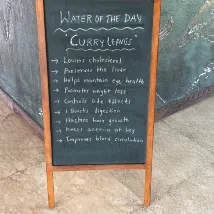 WATER OF THE DAY
"CURRY LEAVES"
→ Lowers cholesterol
→ Preserves the liver
→ Helps maintain eye health
→ Promotes weight loss
→ Controls side effects
→ Boosts digestion
→ Hastens hair growth
→ Keeps anemia at bay
→ Improves blood circulation